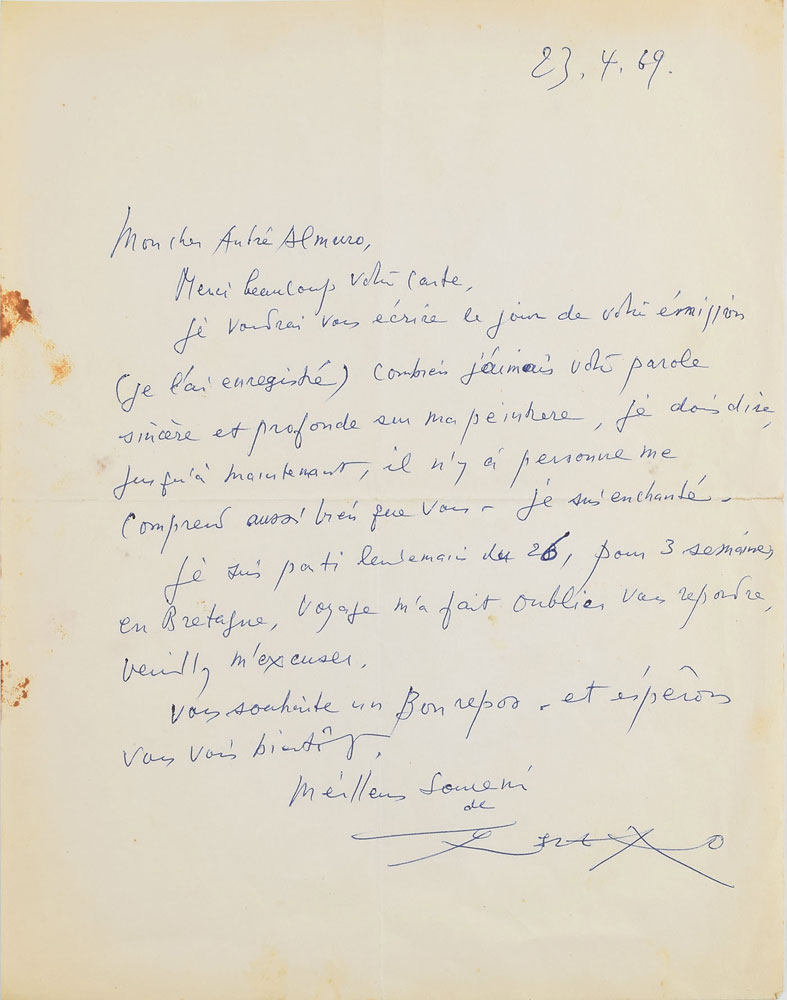 23.4.69.
Mon cher André Almuro,
Merci beaucoup votre carte,
Je voudrai vous écrire le jour de votre émission
(je l'ai enregistré) Combien j'aimais votre parole
sincère et profonde sur ma peinture, je dois dire,
jusqu'à maintenant, il n'y a personne me
comprend aussi bien que vous - je suis enchanté.
Je suis parti lendemain du 26, pour 3 semaines
en Bretagne, voyage m'a fait oublier vous repondre,
veuillez m'excuser.
Vous souhaite un Bon repos - et éspérons
vous voir bientôt.
Meilleurs Souvenir
de